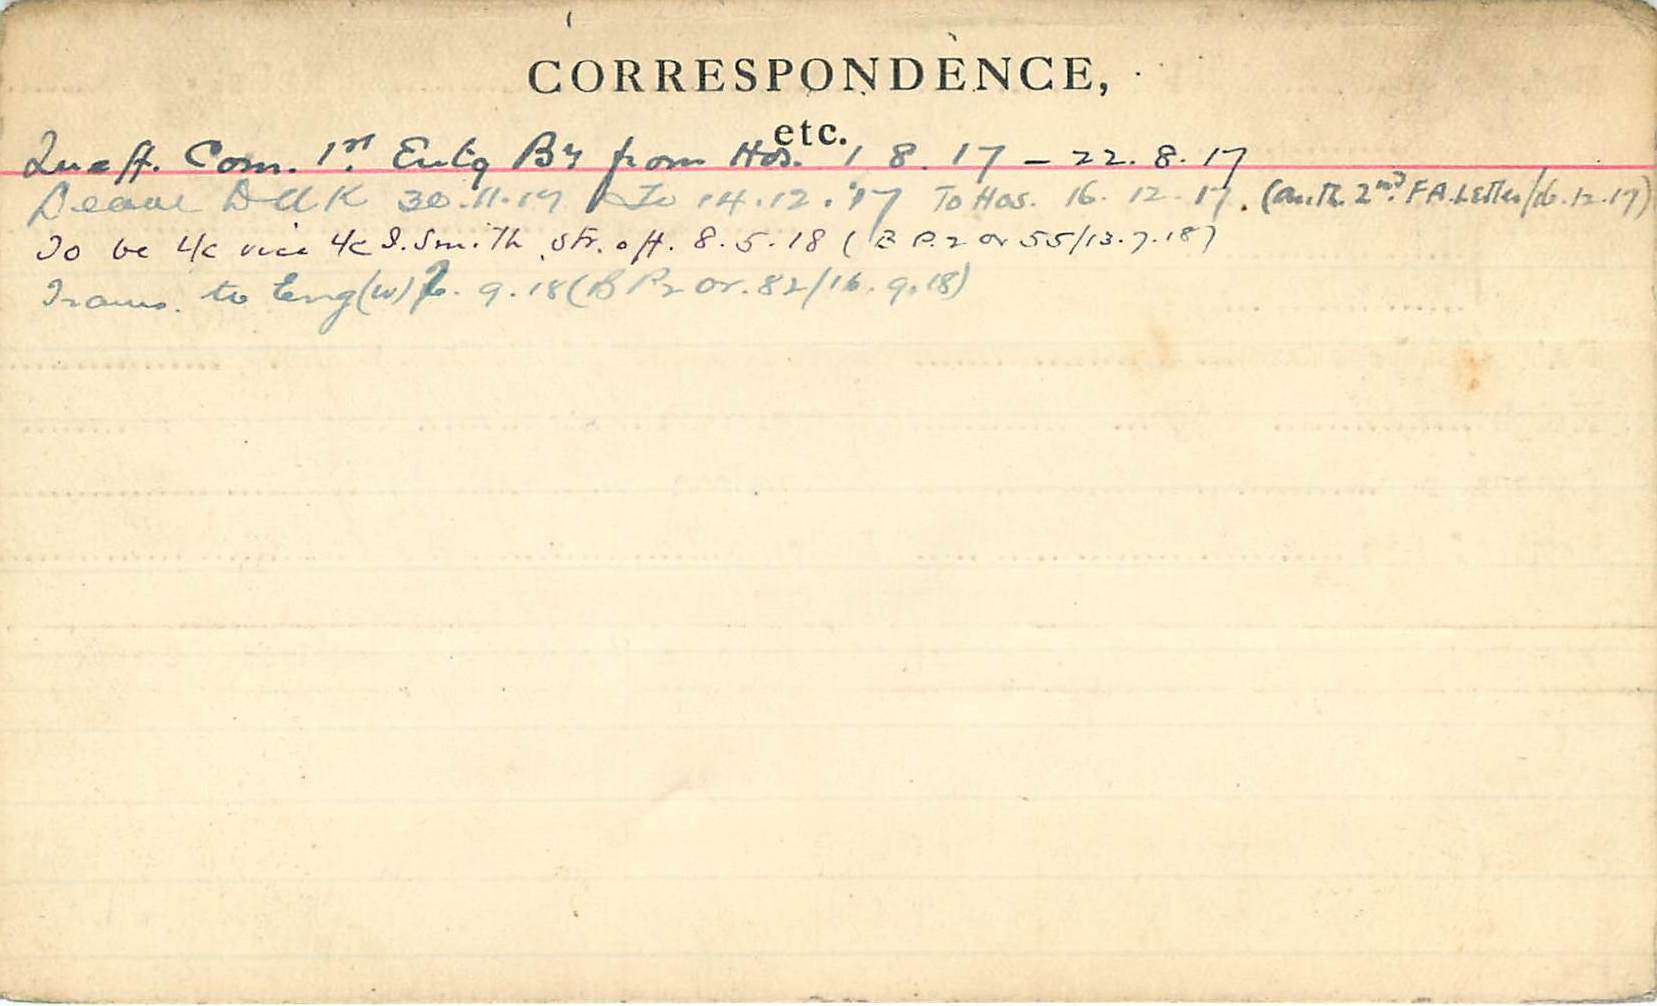 CORRESPONDENCE,
etc.
Com. 1st. Entg Bn from Hos. 1 8. 17 – 22. 8. 17
Leave U K 30.11.17 To 14.12.'17 To Hos. 16. 12. 17. (Auth. 2nd. F A. Letter/16.12.17)
To be L/c vice L/c S. Smith, Str. off. 8. 5. 18 ( B P. 2 or 55/13.7.18)
Trans. to Eng(w) 9.18 (B P2 or. 82/16. 9.18)